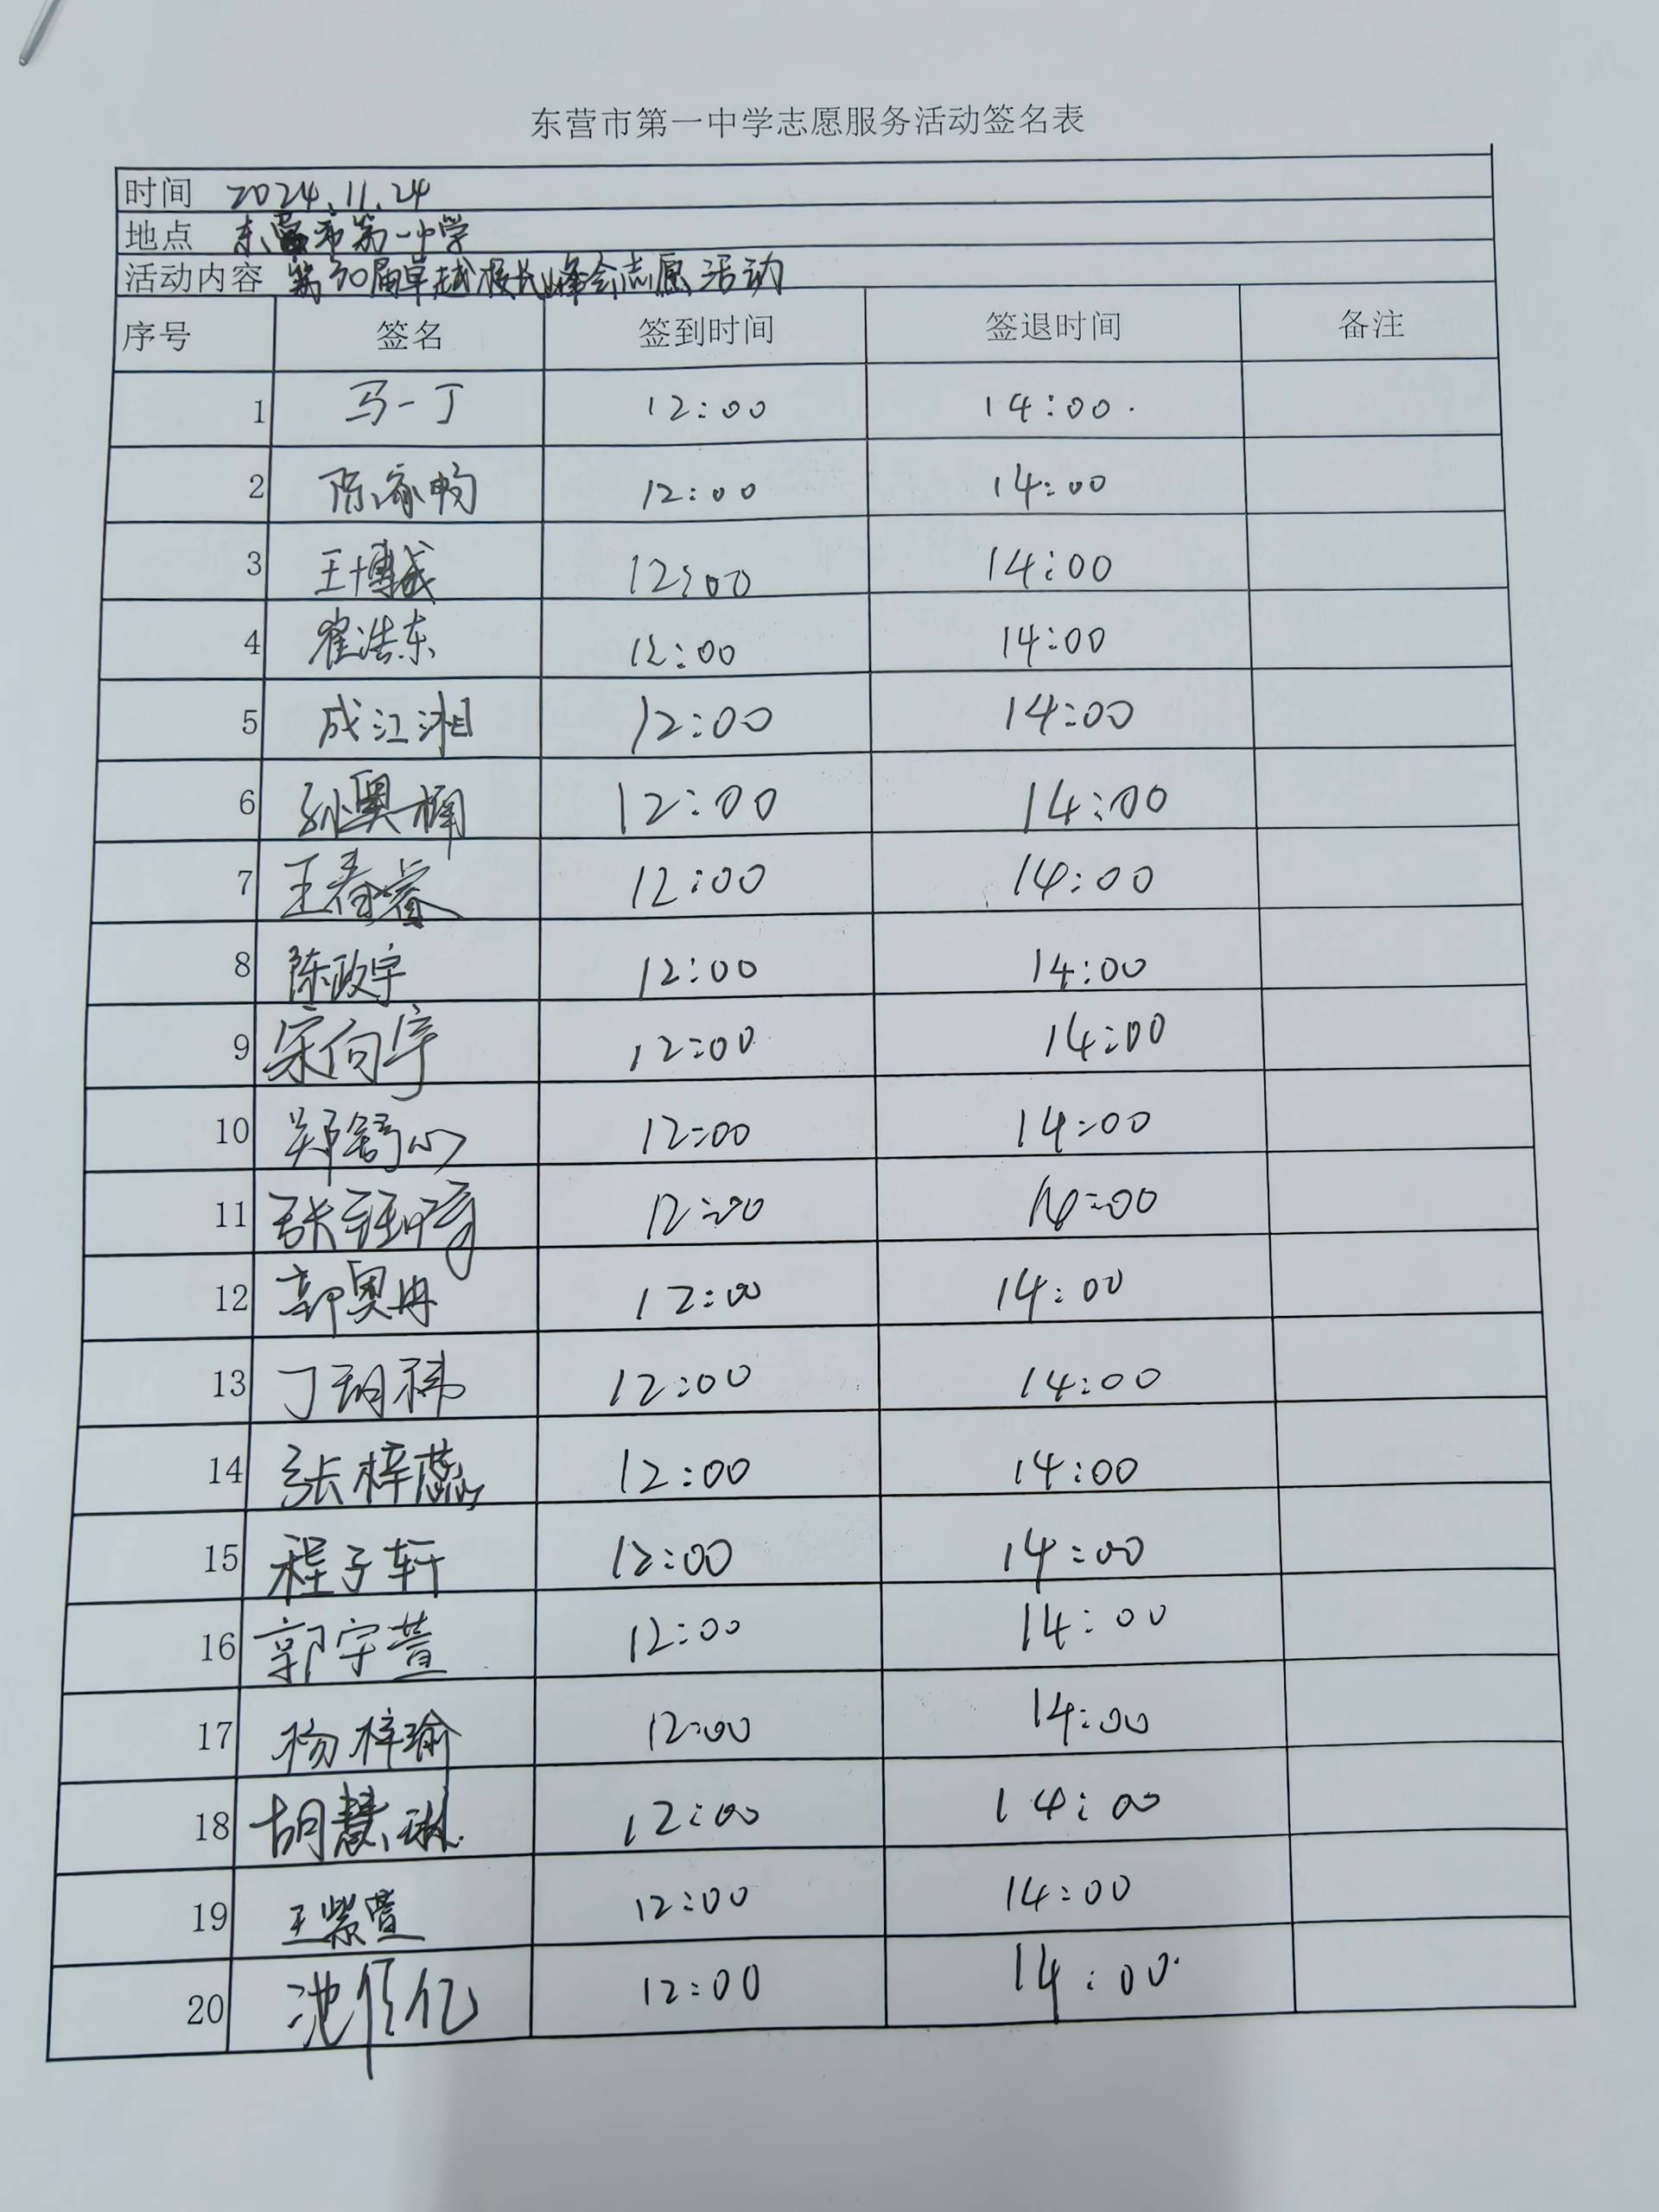 东营市第一中学志愿服务活动签名表
时间 2024.11.24
地点 东营市第一中学
活动内容 第30届卓越校长峰会志愿活动
序号 签名 签到时间 签退时间 备注
1 马一丁 12:00 14:00
2 陈 畅 12:00 14:00
3 王博 12:00 14:00
4 翟浩东 12:00 14:00
5 成江湘 12:00 14:00
6 孙奥 12:00 14:00
7 王春睿 12:00 14:00
8 陈政宇 12:00 14:00
9 宋向宇 12:00 14:00
10 郑舒心 12:00 14:00
11 张 12:00 14:00
12 郭奥冉 12:00 14:00
13 丁玥祎 12:00 14:00
14 张梓蕊 12:00 14:00
15 程子轩 12:00 14:00
16 郭宇萱 12:00 14:00
17 杨梓瑜 12:00 14:00
18 胡慧琳 12:00 14:00
19 王紫萱 12:00 14:00
20 池 亿 12:00 14:00